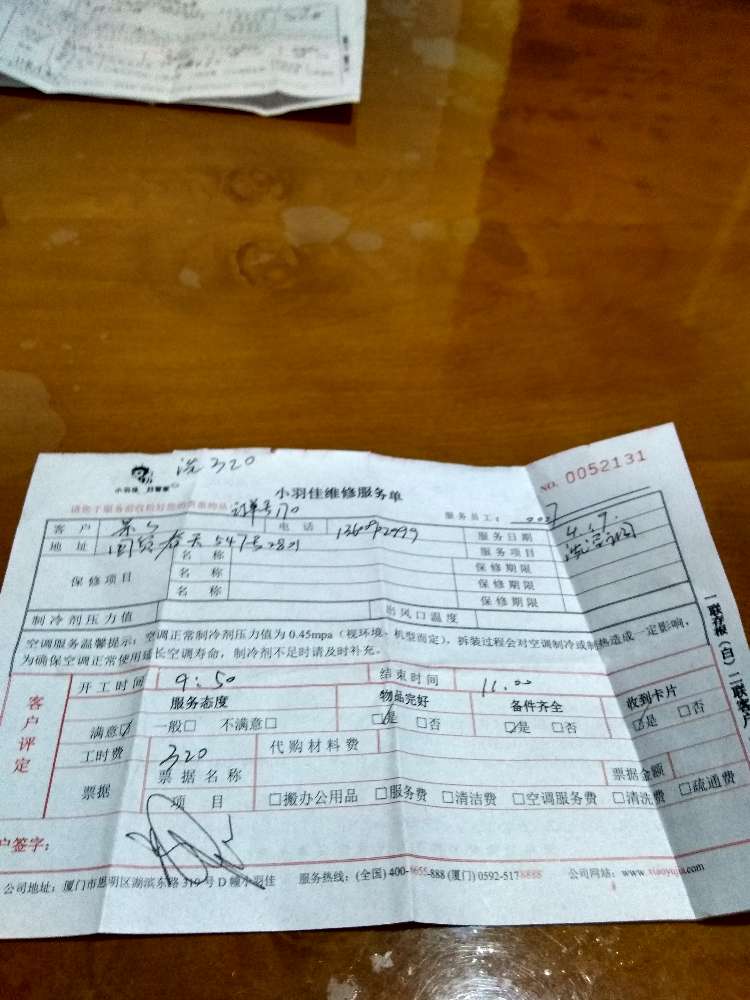 洗320
小羽佳 好管家
小羽佳维修服务单
NO. 0052131
订单号170
服务员工：
客户
电话
服务日期 4.19.
地址 国贸春天547号2801
服务项目 洗空调
保修项目
名称
保修期限
名称
保修期限
名称
保修期限
制冷剂压力值
出风口温度
空调服务温馨提示：空调正常制冷剂压力值为0.45mpa（视环境、机型而定），拆装过程会对空调制冷或制热造成一定影响，
为确保空调正常使用延长空调寿命，制冷剂不足时请及时补充。
客户评定
开工时间 9:50
结束时间 11.00
服务态度
物品完好
备件齐全
收到卡片
满意☑ 一般□ 不满意□
☑是 □否
☑是 □否
☑是 □否
工时费 320
代购材料费
票据
票据名称
票据金额
项目
□搬办公用品 □服务费 □清洁费 □空调服务费 □清洗费 □疏通费
户签字：
公司地址：厦门市思明区湖滨东路319号D幢小羽佳
服务热线：(全国) 400-6655-888 (厦门) 0592-5178888
公司网站：www.xiaoyujia.com
一联存根（白）二联客户